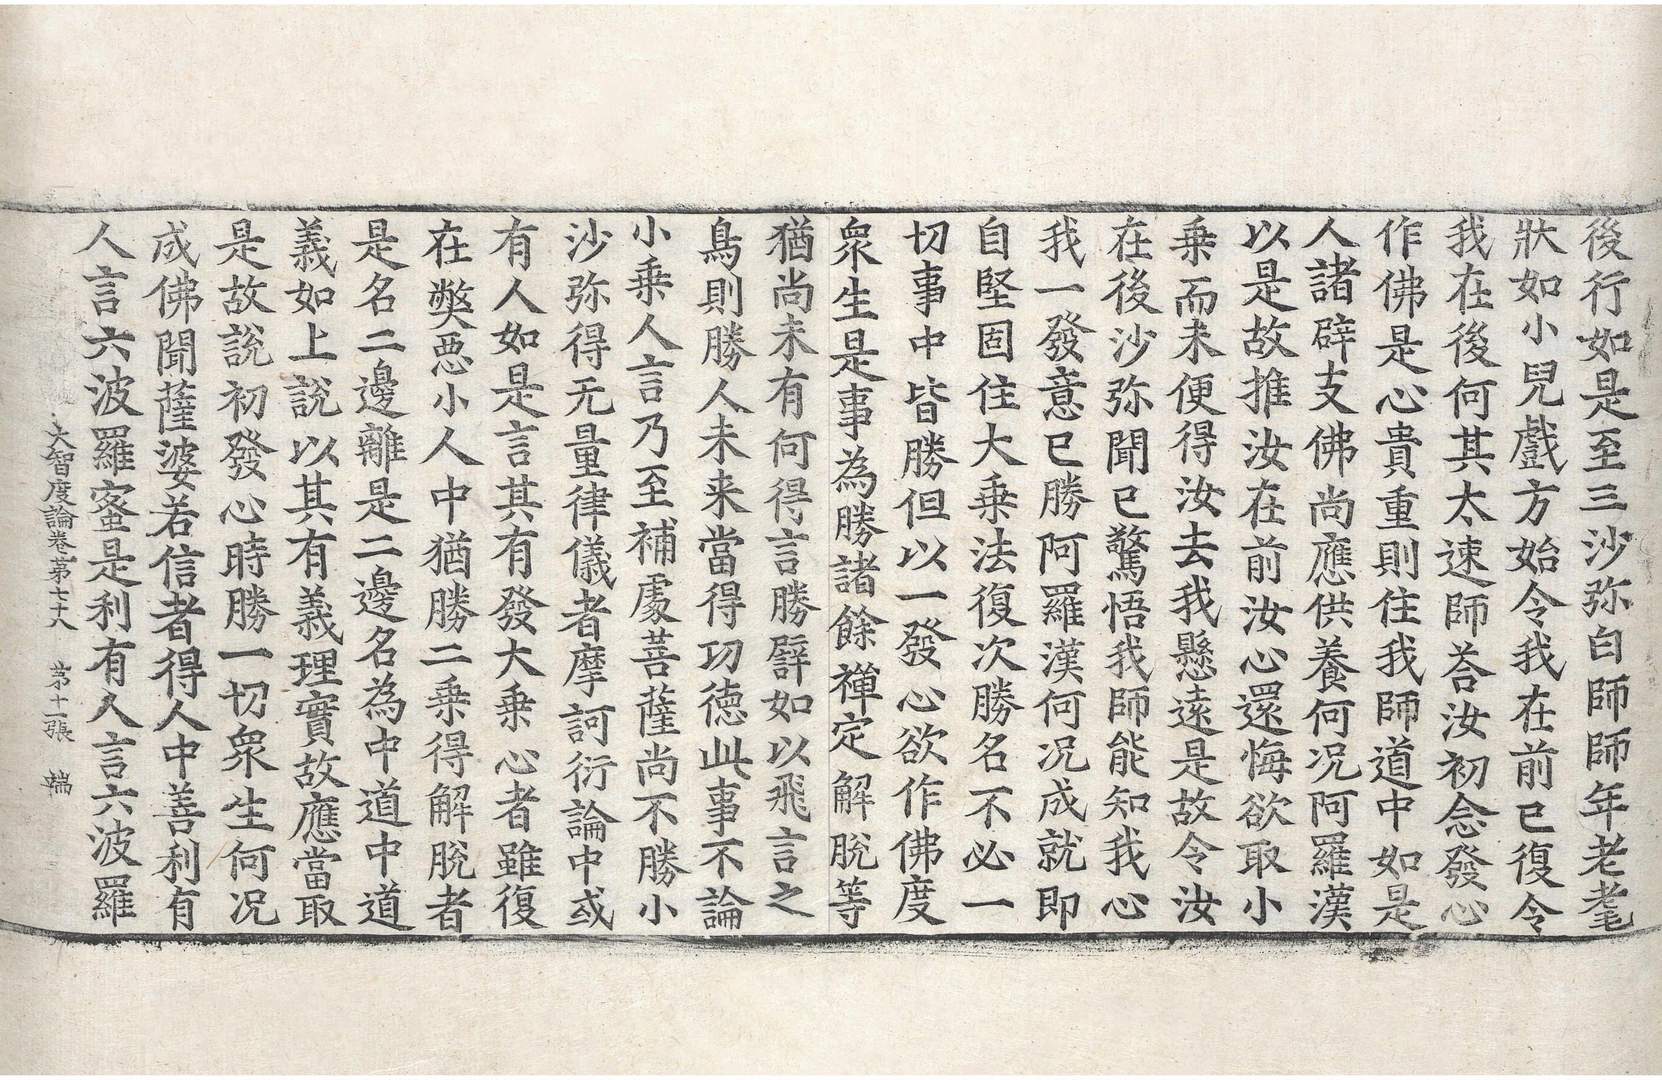 後行如是至三沙弥白師師年老耄
狀如小兒戲方始令我在前已復令
我在後何其太速師荅汝初念發心
作佛是心貴重則住我師道中如是
人諸辟支佛尚應供養何況阿羅漢
以是故推汝在前汝心還悔欲取小
乘而未便得汝去我懸遠是故令汝
在後沙弥聞已驚悟我師能知我心
我一發意已勝阿羅漢何况成就即
自堅固住大乘法復次勝名不必一
切事中皆勝但以一發心欲作佛度
衆生是事為勝諸餘禪定解脫等
猶尚未有何得言勝譬如以飛言之
鳥則勝人未来當得功德此事不論
小乘人言乃至補處菩薩尚不勝小
沙弥得无量律儀者摩訶衍論中或
有人如是言其有發大乘心者雖復
在獘惡小人中猶勝二乘得解脫者
是名二邊離是二邊名為中道中道
義如上說以其有義理實故應當取
是故說初發心時勝一切衆生何况
成佛聞薩婆若信者得人中善利有
人言六波羅蜜是利有人言六波羅
大智度論卷第七十八 第十一張 端